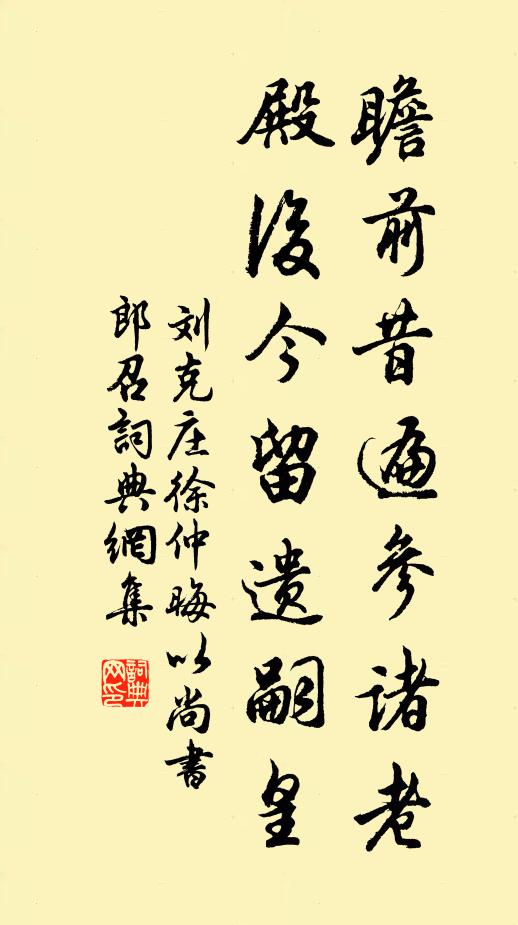 瞻前昔遍參诸老
殿後今留遗嗣皇
刘克庄徐仲晦以尚書
郎召詞典網集
詞典网印